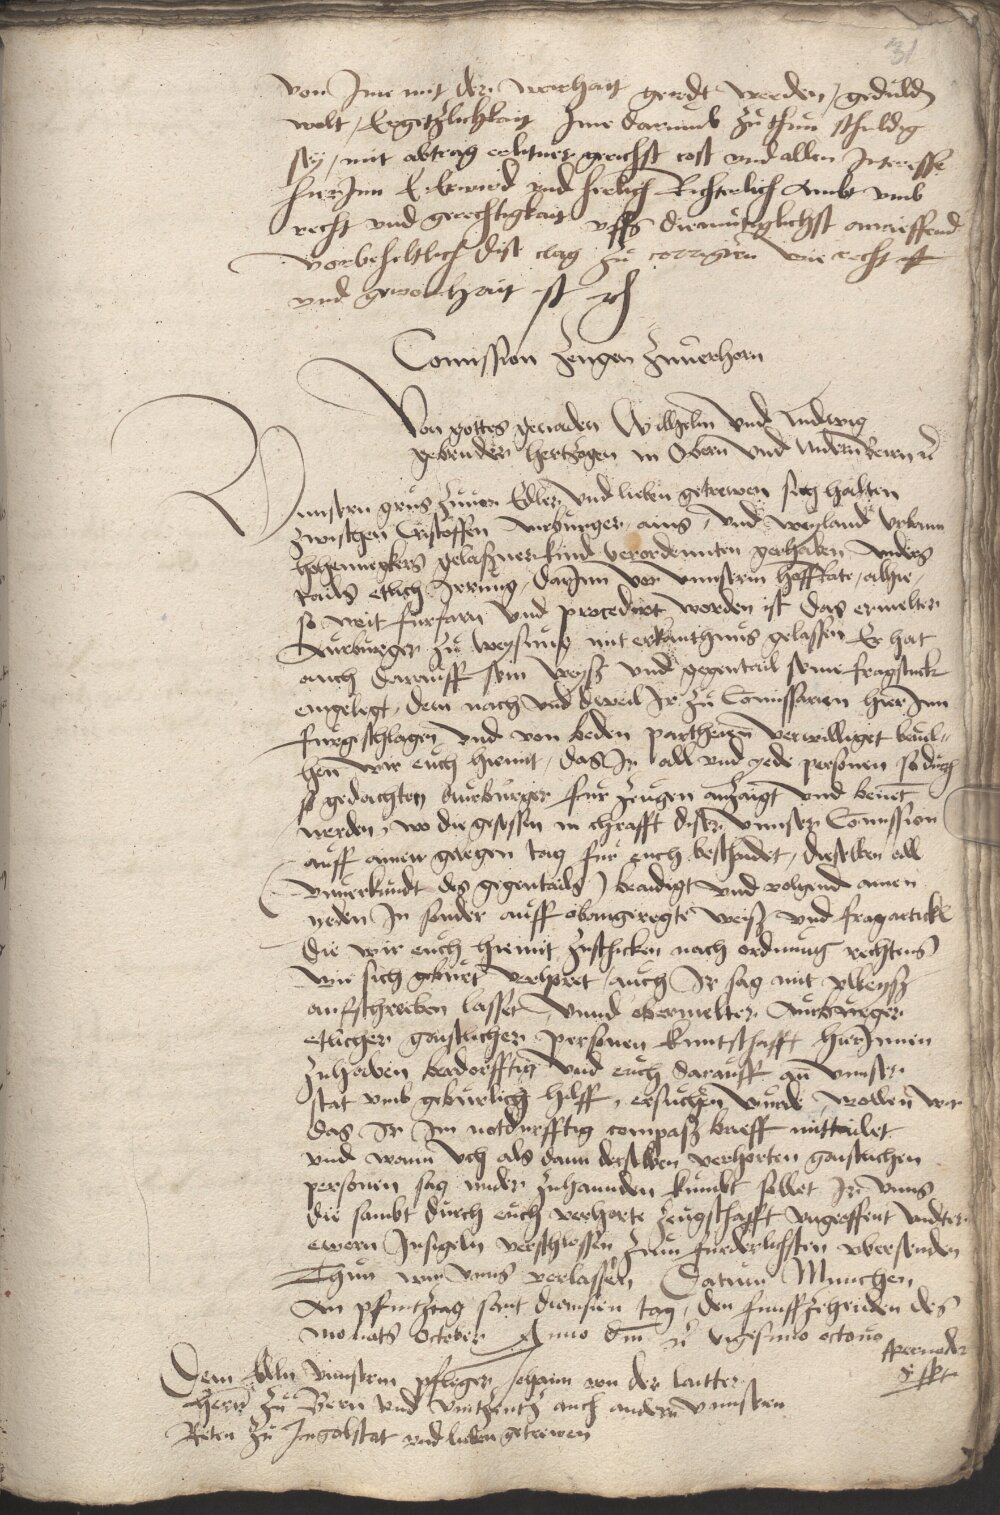 31
von Ime mit der warhait geredt werden / geduld
wolt / Ergetzlichkait Ime darumb zu thun schuldig
sey / mit abtrag erlitner gericht cost und allen Interesse
hierInn E. hlich Richterlich Ambt umb
recht und gerechtigkait uffs diemuetiglichst anrieffend
vorbeheltlich dise clag zu corrigirn wie recht ist
und gewonhait ist
Comission Zeugen Zuuerhorn
Von gottes genaden Wilhelm und Ludwig
gebrueder hertzogen in Obern und Nidern Beirn
Unnsern grus zuuor Edler und lieben getrewen sich halten
zwischen Cristoffen Aurburger, ains, und weyland Urban
gelassner kind verordennten gerhaben anders
tails etlich Irrung, darInn vor unnserm Hoffrate, alhie,
so weit furfarn und procedirt worden ist das ermelter
Aurburger zu weysung mit erkanthnus gelassen Er hat
auch darauff sein weys und gegentail seine fragstuck
eingelegt, dem nach und dweil Ir zu Comissarien hierInn
furgeschlagen und von beden partheien verwilliget beuel-
hen wir euch hiemit, das Ir all und yede personen so durch
gedachten Aurburger fur zeugen antzaigt und benent
werden, wo die gesessen in chrafft diser unnser Comission
auff ainen gelegen tag fur euch beschaidet, dieselben all
unuerkundt des gegentails) beaidigt und volgend ainen
yeden In sonder auff obangeregte weis und fragartickl
die wir euch hiemit zuschicken nach ordnung rechtens
wie sich geburt verhoret / auch Ir sag mit vleys
aufschreiben lasset, Unnd obermelter Aurburger
etlicher gaistlicher personen kuntschafft hierInnen
zuhaben bedorfftig und euch darauff an unnser
stat umb geburlich hilff, ersuchen wurde, wollen wir
das Ir Im notdurfftig compas brieff mittailet
und wann als dann derselben verhorten gaistlichen
personen sag zuhannden kumbt sollet Ir unns
die sambt durch euch verhorte zeugschafft ungeoffent undter
ewern Insigeln verschlossen zum furderlichsten ubersenden
Thun wir unns verlassen Datum Munchen
An pfintztag sant tag, den funffzehenden des
monats October Anno dm vigesimo octavo
Dem Edln unnserm pfleger Johann von der Laitter
Hern zu Bern und Vincentz auch andern unnsern
Reten zu Ingolstat und lieben getrewen